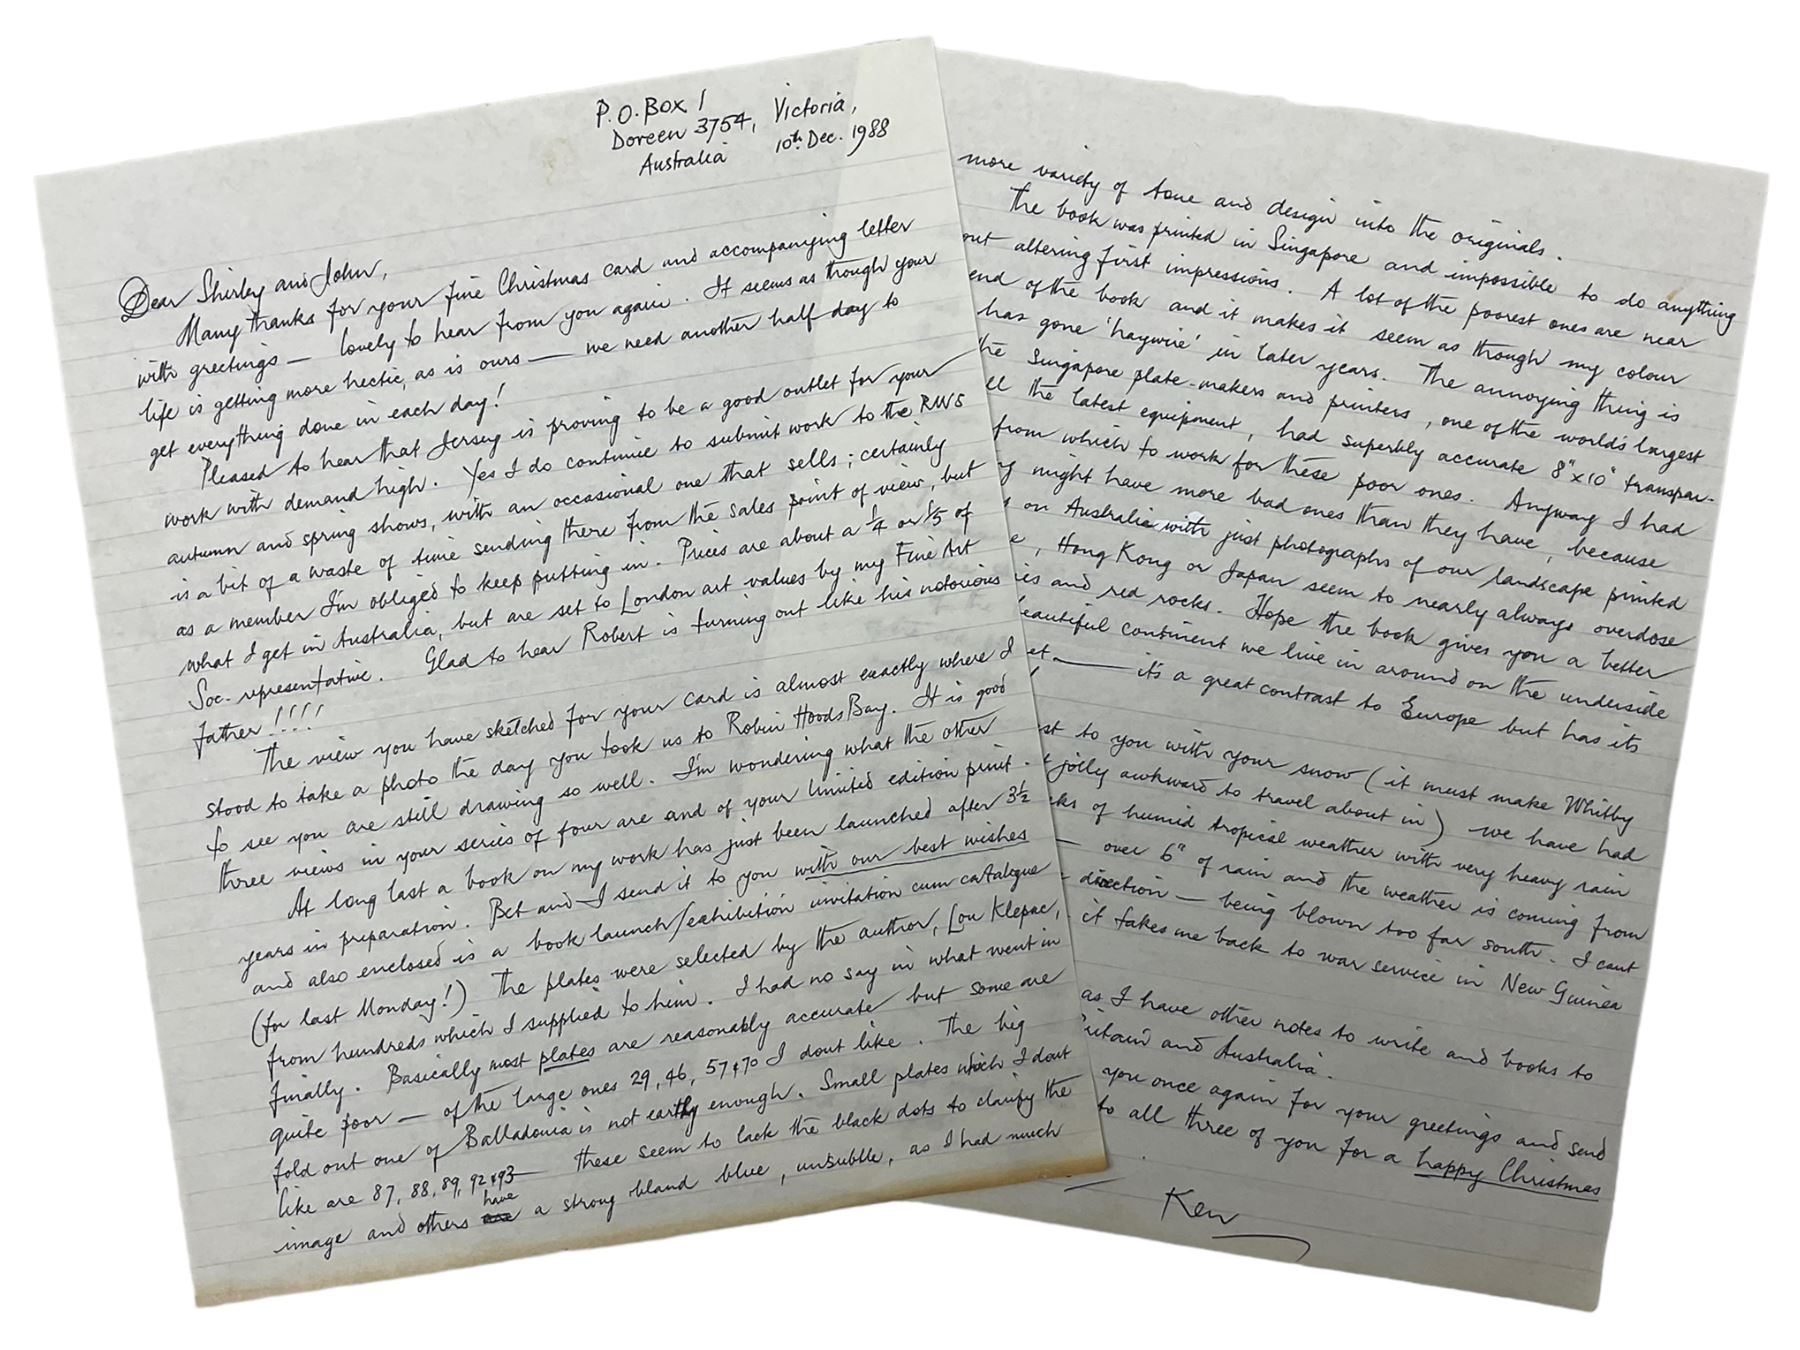 P.O. Box 1
Doreen 3754, Victoria,
Australia 10th Dec. 1988
Dear Shirley and John,
Many thanks for your fine Christmas card and accompanying letter
with greetings — lovely to hear from you again. It seems as though your
life is getting more hectic, as is ours — we need another half day to
get everything done in each day!
Pleased to hear that Jersey is proving to be a good outlet for your
work with demand high. Yes I do continue to submit work to the RWS
autumn and spring shows, with an occasional one that sells; certainly
is a bit of a waste of time sending there from the sales point of view, but
as a member I'm obliged to keep putting in. Prices are about a 1/4 or 1/5 of
what I get in Australia, but are set to London art values by my Fine Art
Soc. representative. Glad to hear Robert is turning out like his notorious
father!!!!
The view you have sketched for your card is almost exactly where I
stood to take a photo the day you took us to Robin Hoods Bay. It is good
to see you are still drawing so well. I'm wondering what the other
three views in your series of four are and of your limited edition print.
At long last a book on my work has just been launched after 3½
years in preparation. Bet and I send it to you with our best wishes
and also enclosed is a book launch/exhibition invitation cum catalogue
(for last Monday!) The plates were selected by the author, Lou Klepac,
from hundreds which I supplied to him. I had no say in what went in
finally. Basically most plates are reasonably accurate but some are
quite poor — of the large ones 29, 46, 57 & 70 I dont like. The big
fold out one of Balladonia is not earthy enough. Small plates which I dont
like are 87, 88, 89, 92 & 93 — these seem to lack the black dots to clarify the
image and others have a strong bland blue, unsubtle, as I had much
more variety of tone and design into the originals.
The book was printed in Singapore and impossible to do anything
out altering first impressions. A lot of the poorest ones are near
end of the book and it makes it seem as though my colour
has gone 'haywire' in later years. The annoying thing is
the Singapore plate-makers and printers, one of the world's largest
ll the latest equipment, had superbly accurate 8"x10" transpar-
from which to work for these poor ones. Anyway I had
y might have more bad ones than they have, because
on Australia with just photographs of our landscape printed
e, Hong Kong or Japan seem to nearly always overdose
ies and red rocks. Hope the book gives you a better
eautiful continent we live in around on the underside
et — it's a great contrast to Europe but has its
st to you with your snow (it must make Whitby
jolly awkward to travel about in) we have had
eks of humid tropical weather with very heavy rain
— over 6" of rain and the weather is coming from
direction — being blown too far south. I cant
it takes me back to war service in New Guinea
as I have other notes to write and books to
ritain and Australia.
you once again for your greetings and send
to all three of you for a happy Christmas
Ken